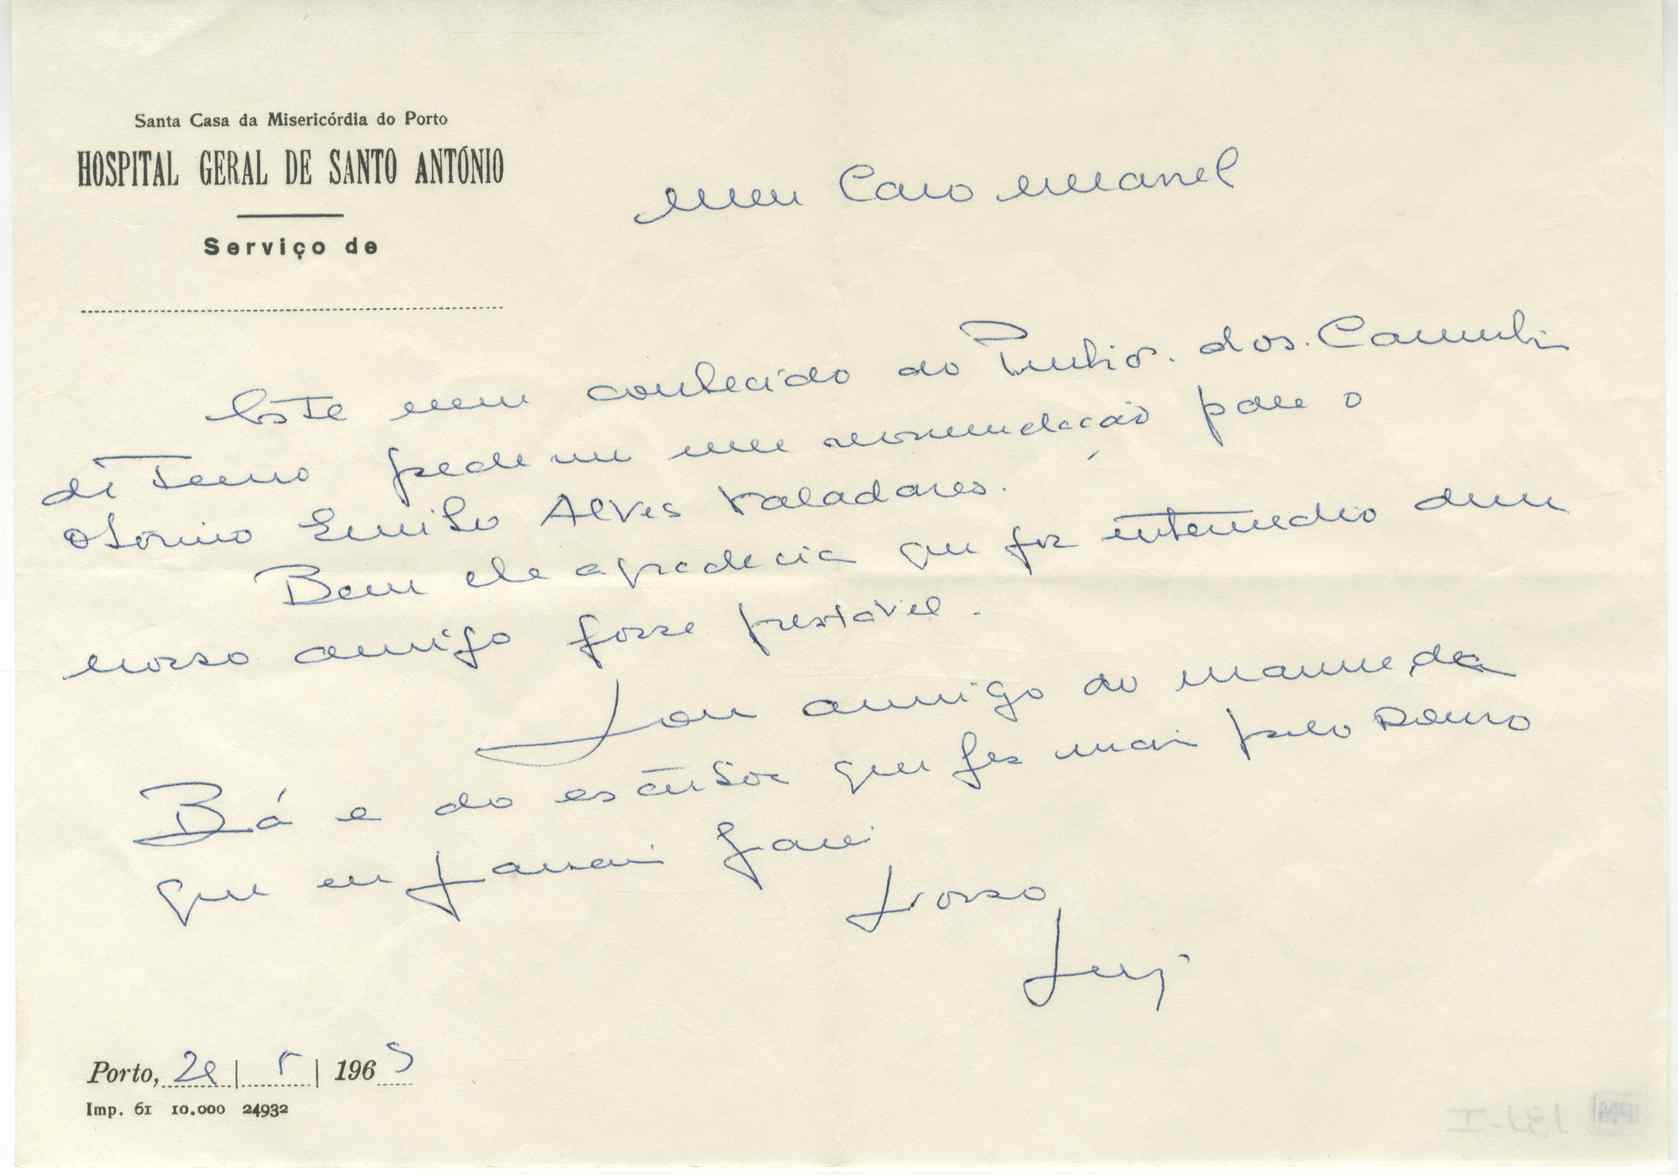 Santa Casa da Misericórdia do Porto
HOSPITAL GERAL DE SANTO ANTÓNIO
Serviço de
Meu Caro Manel
Este meu conhecido do Pinhão dos Caminhos
de Ferro pede-me uma recomendação para o
Otorino Emilio Alves Valadares.
Bem ele agradecia que por intermedio dum
nosso amigo fosse prestável.
Sou amigo do
Bá e do escritor que fez mais pelo Douro
que eu jamais farei
Vosso
Luiz
Porto, 29 | 5 | 1965
Imp. 61 10.000 24932